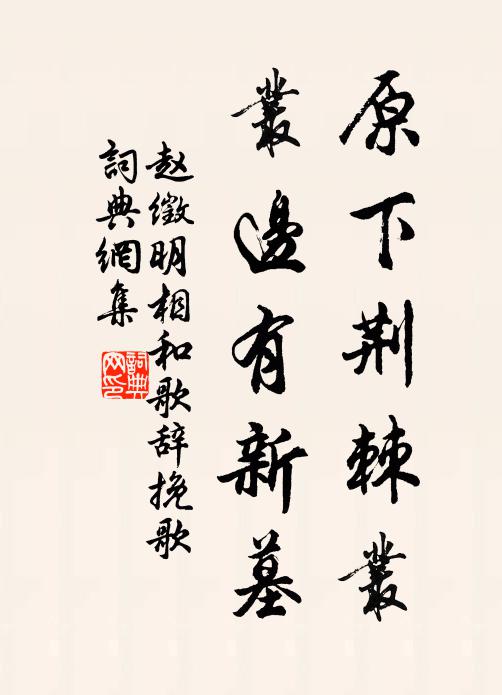 原下荆棘叢
叢邊有新墓
赵徵明相和歌辞挽歌
詞典網集
詞典
网印